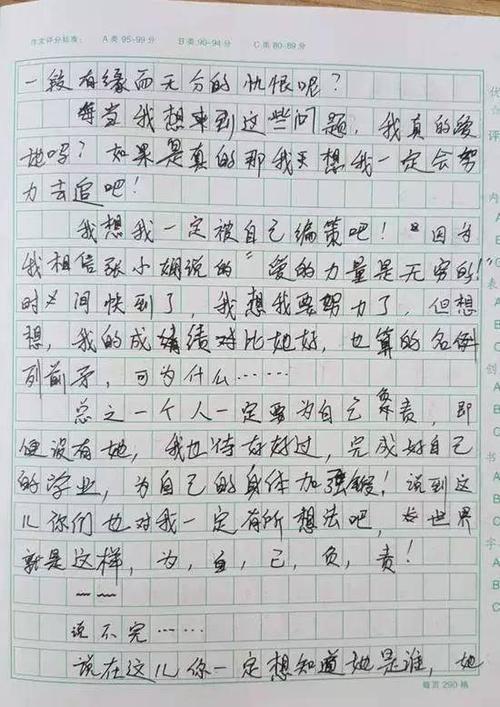 作文评分标准： A类95-99分 B类90-94分 C类80-89分
一段有缘而无分的仇恨呢？
每当我想来到这些问题，我真的爱
她吗？如果是真的那我天想我一定会努
力去追吧！
我想我一定被自己编策吧！“因为
我相信张小娴说的“爱的力量是无穷的！
时间快到了，我想我要努力了，但想
想，我的成绩对比她好，也算的名例
列前矛，可为什么……
总之一个人一定要为自己负责，即
便没有她，我也待好好过，完成好自己
的学业，为自己的身体加强锻！说到这
儿你们也对我一定有所想法吧，世界
就是这样，为，自，己，负，责！
~~
说不完……
说在这儿你一定想知道她是谁，她
每页290格
优
评
A
B
C
内
A
B
C
表
A
创
A
B
书
A
B
C
字
A
B
C